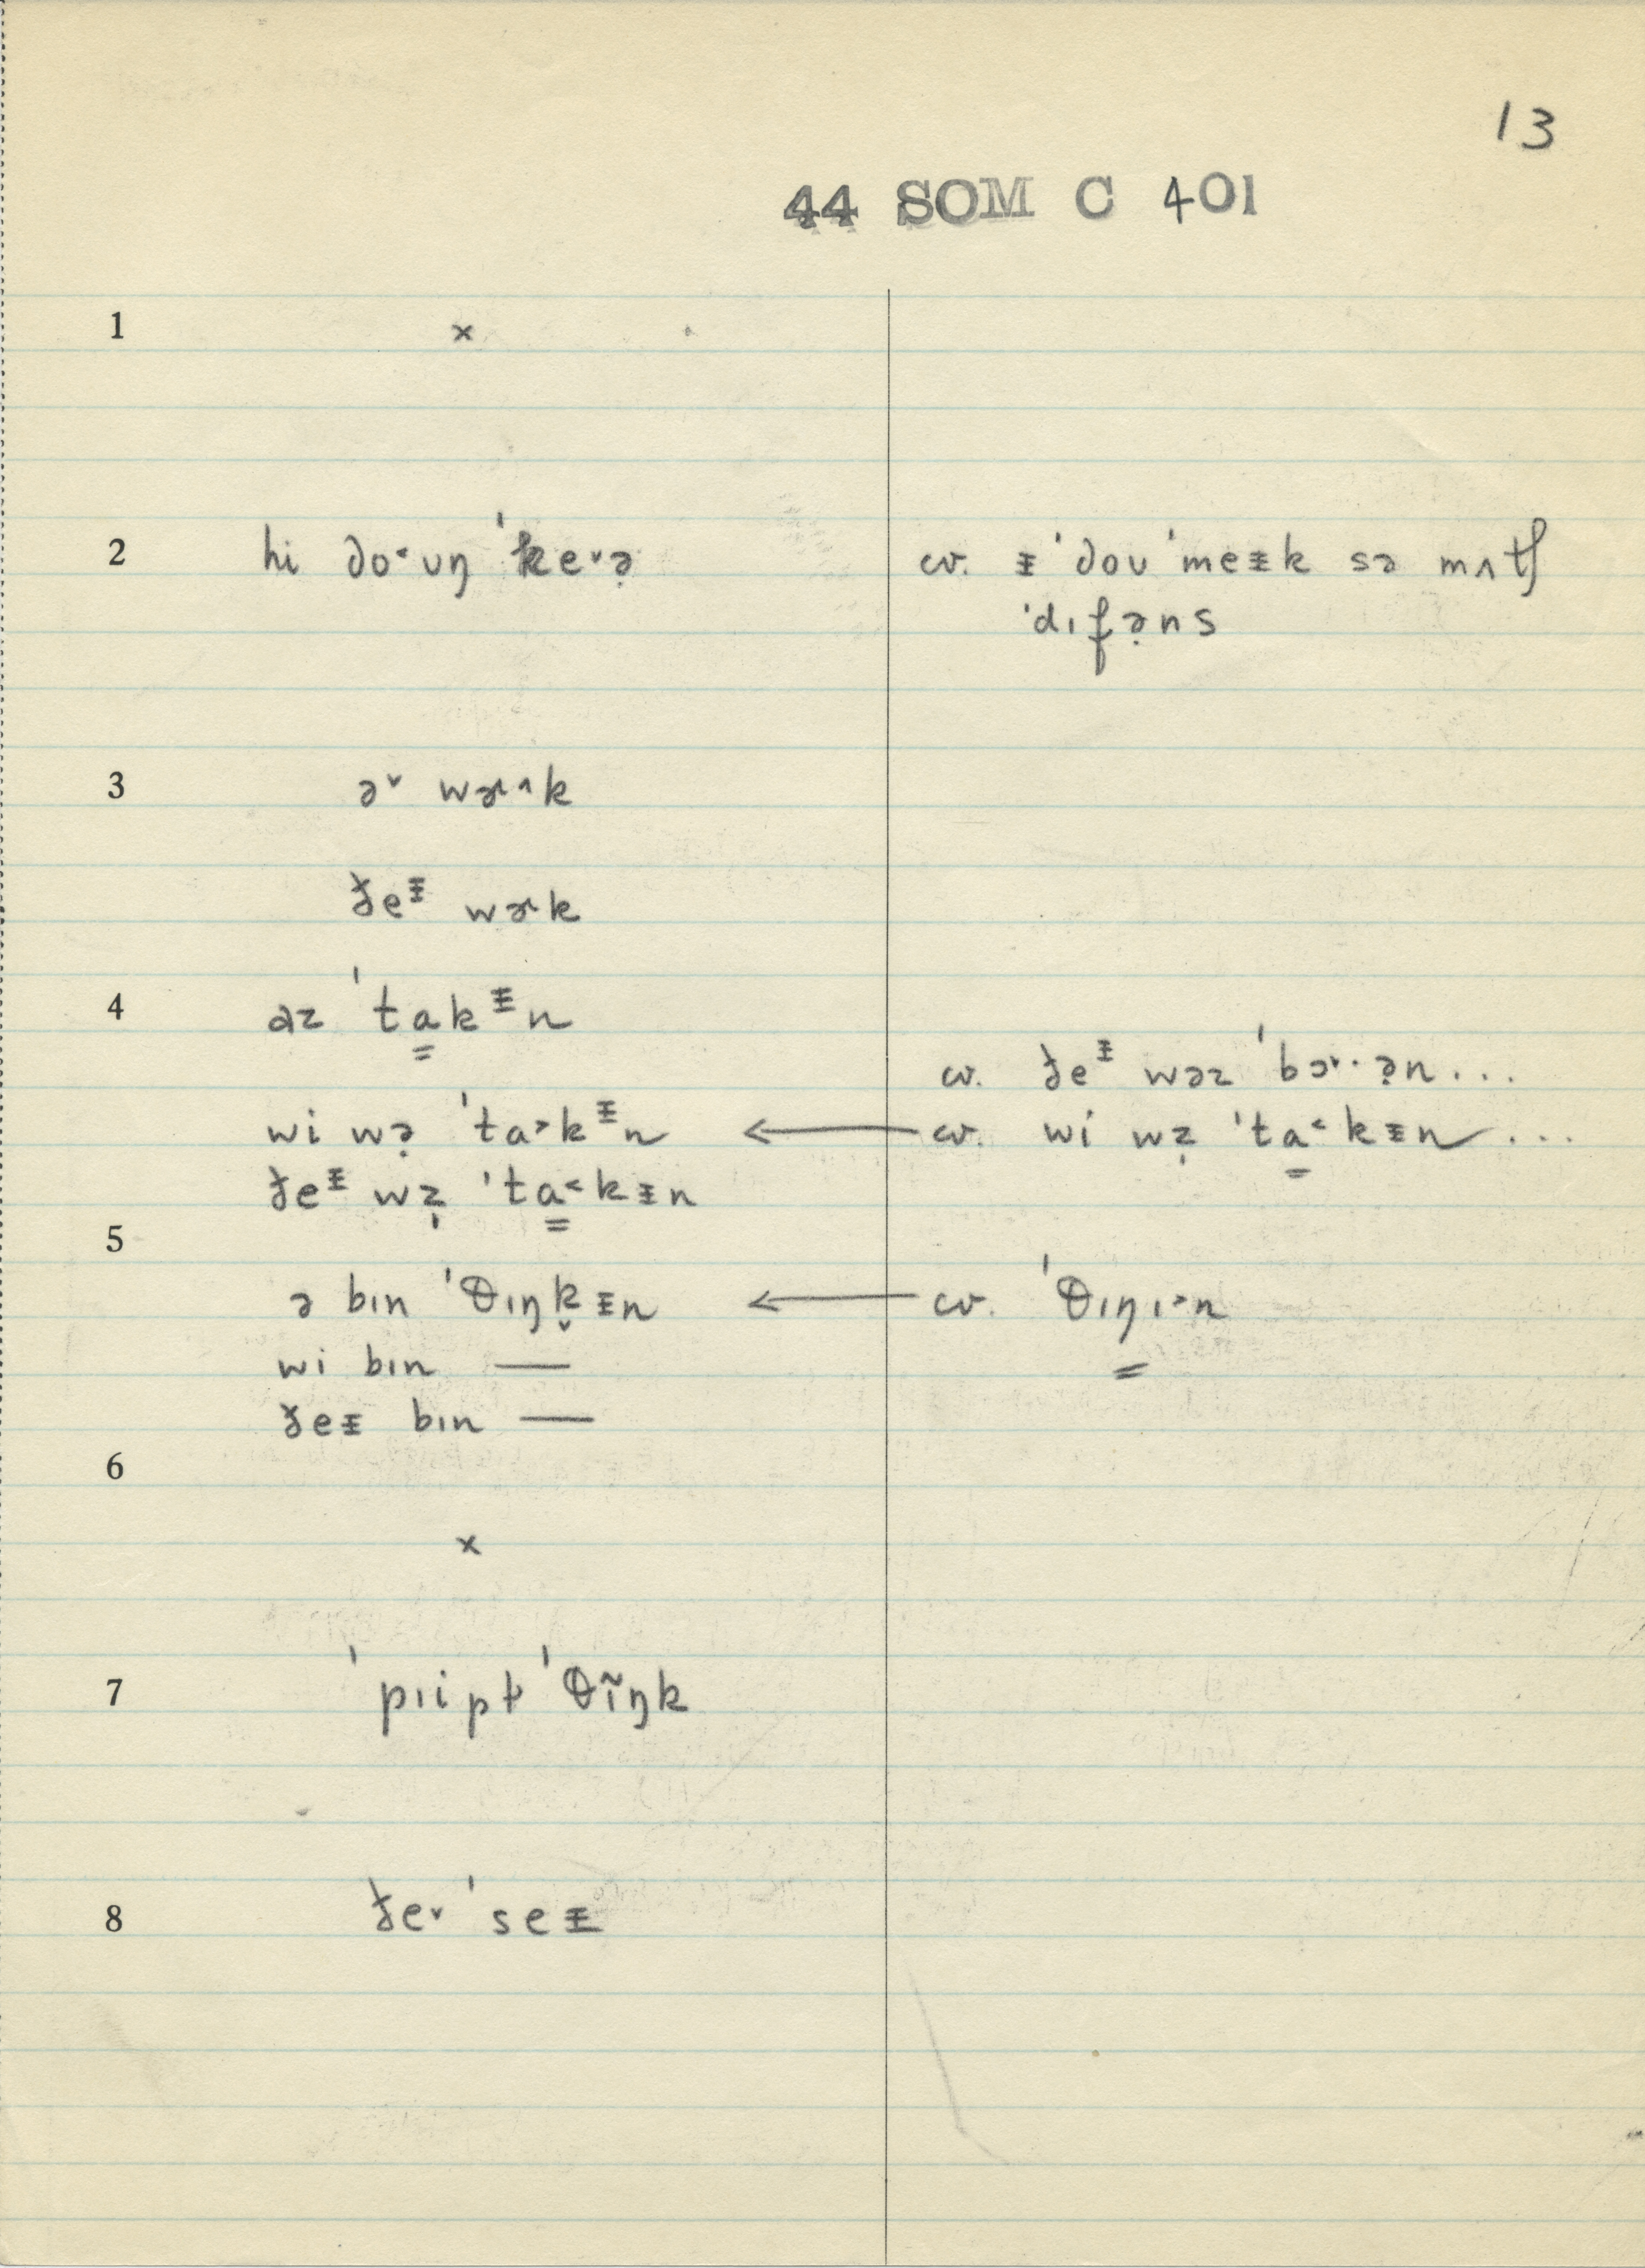 13
44 SOM C 401
1 ×
2 hi do˂ʊŋ ˈke˅ə̣ cv. ᵻ ˈdoʊ ˈmeᵻk sə mʌtʃ
ˈdɪfə̣ns
3 ə˅ wɚ˄k
ðeᵻ wɚk
4 əz ˈta̳kᵻn
cv. ðeᵻ wəz ˈbɔ˞·ə̣n...
wi wə̣ ˈta˃kᵻn ← cv. wi wẓ ˈta̳˂kᵻn...
ðeᵻ wẓ ˈta̳˂kᵻn
5
ə bɪn ˈθɪŋk̬ᵻn ← cv. ˈθɪŋɪ˃n
wi bɪn —
ðeᵻ bɪn —
6
×
7 ˈpɹipɫ ˈθĩŋk
8 ðe˅ ˈseᵻ